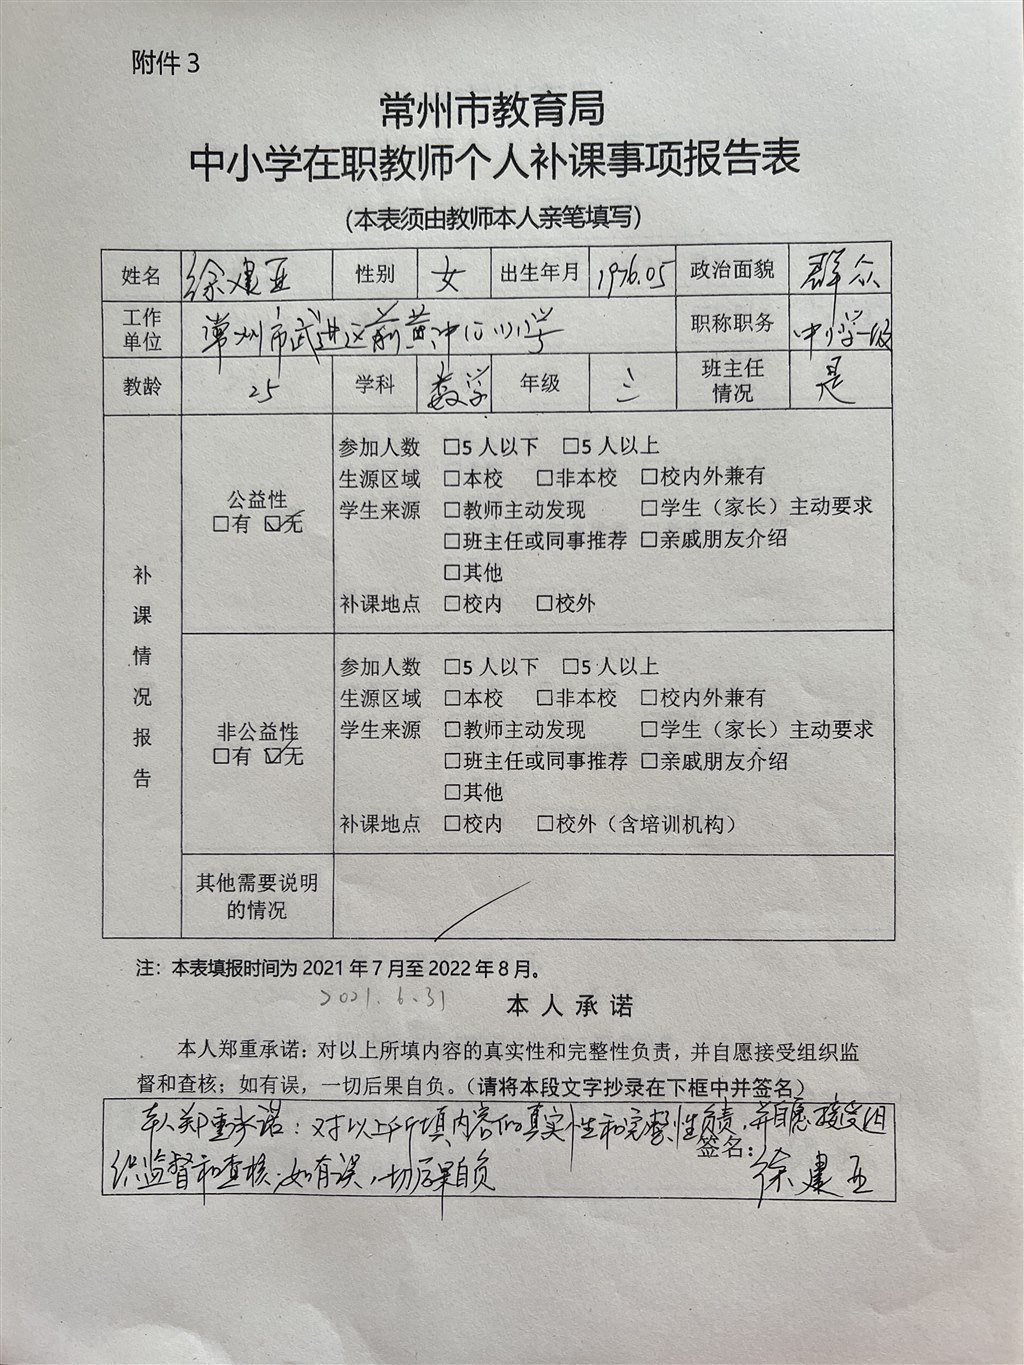 附件3
常州市教育局
中小学在职教师个人补课事项报告表
（本表须由教师本人亲笔填写）
姓名 徐建亚 性别 女 出生年月 1976.05 政治面貌 群众
工作单位 常州市武进区前黄中心小学 职称职务 中小学一级
教龄 25 学科 数学 年级 三 班主任情况 是
补课情况报告
公益性
□有 ☑无
参加人数 □5人以下 □5人以上
生源区域 □本校 □非本校 □校内外兼有
学生来源 □教师主动发现 □学生（家长）主动要求
□班主任或同事推荐 □亲戚朋友介绍
□其他
补课地点 □校内 □校外
非公益性
□有 ☑无
参加人数 □5人以下 □5人以上
生源区域 □本校 □非本校 □校内外兼有
学生来源 □教师主动发现 □学生（家长）主动要求
□班主任或同事推荐 □亲戚朋友介绍
□其他
补课地点 □校内 □校外（含培训机构）
其他需要说明
的情况
注：本表填报时间为2021年7月至2022年8月。
2021.6.31
本人承诺
本人郑重承诺：对以上所填内容的真实性和完整性负责，并自愿接受组织监
督和查核；如有误，一切后果自负。（请将本段文字抄录在下框中并签名）
本人郑重承诺：对以上所填内容的真实性和完整性负责，并自愿接受组
织监督和查核；如有误，一切后果自负
签名：
徐建亚